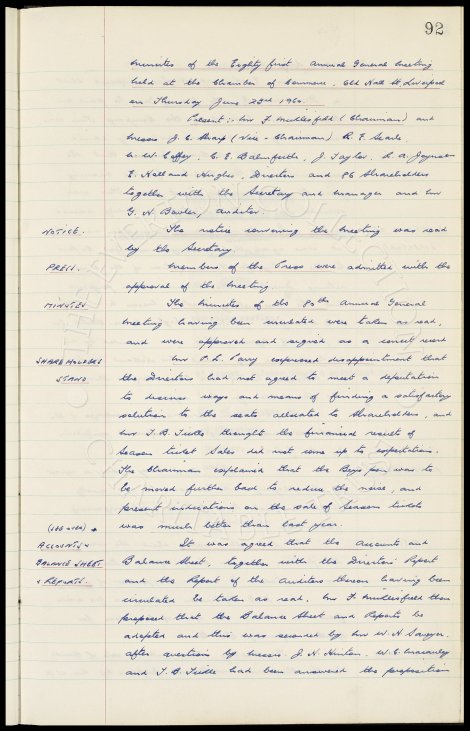 92
Minutes of the Eighty first Annual General Meeting
held at the Chamber of Commerce, Old Hall St, Liverpool
on Thursday June 23rd 1960.
Present:- Mr F. Micklesfield (Chairman) and
Messrs J. C. Sharp (Vice-Chairman) R. F. Searle
W. W. Coffey, C. E. Balmforth, J. Taylor, R. A. Joynson
E. Holland Hughes, Directors and 86 Shareholders
together with the Secretary and Manager and Mr
G. N. Bowler, Auditor.
NOTICE. The notice convening the meeting was read
by the Secretary.
PRESS. Members of the Press were admitted with the
approval of the meeting.
MINUTES The Minutes of the 80th Annual General
Meeting having been circulated, were taken as read,
and were approved and signed as a correct record
SHAREHOLDERS Mr P. L. Parry expressed disappointment that
STAND the Directors had not agreed to meet a deputation
to discover ways and means of finding a satisfactory
solution to the seats allocated to Shareholders, and
Mr T. B. thought the financial results of
Season ticket Sales did not come up to expectations.
The Chairman explained that the Boys pen was to
be moved further back to reduce the noise, and
present indications on the sale of Season tickets
was much better than last year.
(see over) ACCOUNTS It was agreed that the Accounts and
BALANCE SHEET Balance Sheet, together with the Directors' Report
& REPORTS. and the Report of the Auditors thereon having been
circulated be taken as read, Mr F. Micklesfield then
proposed that the Balance Sheet and Reports be
adopted and this was seconded by Mr W. H. Sawyer.
After questions by Messrs J. H. Hinton, W. E.
and T. B. had been answered the proposition